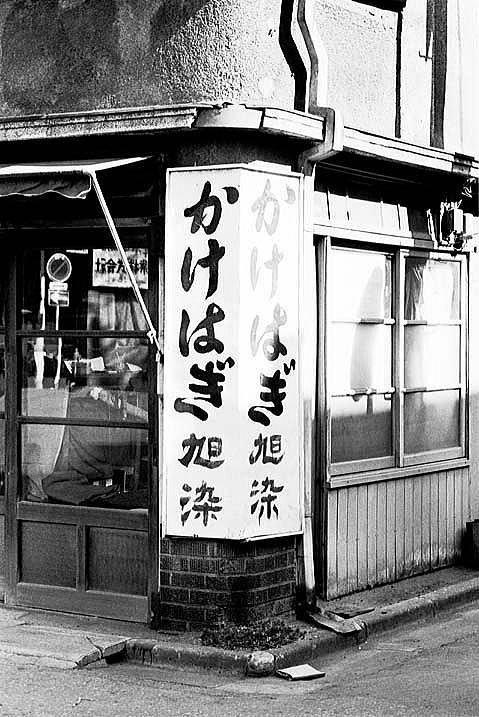 かけはぎ
旭染
かけはぎ
旭染